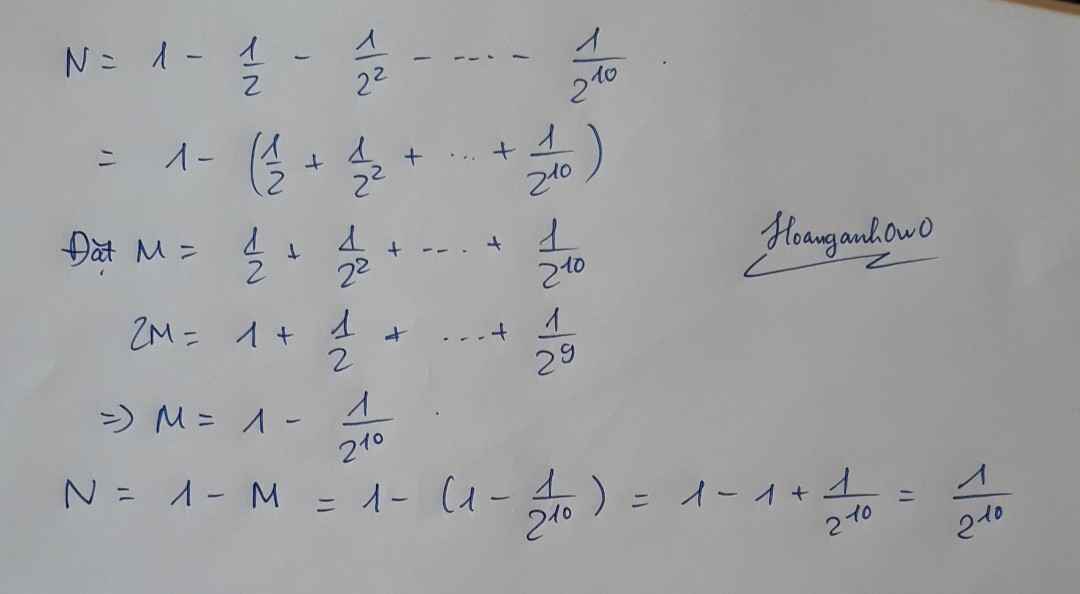 N = 1 - 1/2 - 1/2² - ---- - 1/2¹⁰ .
= 1 - (1/2 + 1/2² + ... + 1/2¹⁰)
Đặt M = 1/2 + 1/2² + ---- + 1/2¹⁰
Hoanganh0w0
2M = 1 + 1/2 + ... + 1/2⁹
=> M = 1 - 1/2¹⁰ .
N = 1 - M = 1 - (1 - 1/2¹⁰) = 1 - 1 + 1/2¹⁰ = 1/2¹⁰